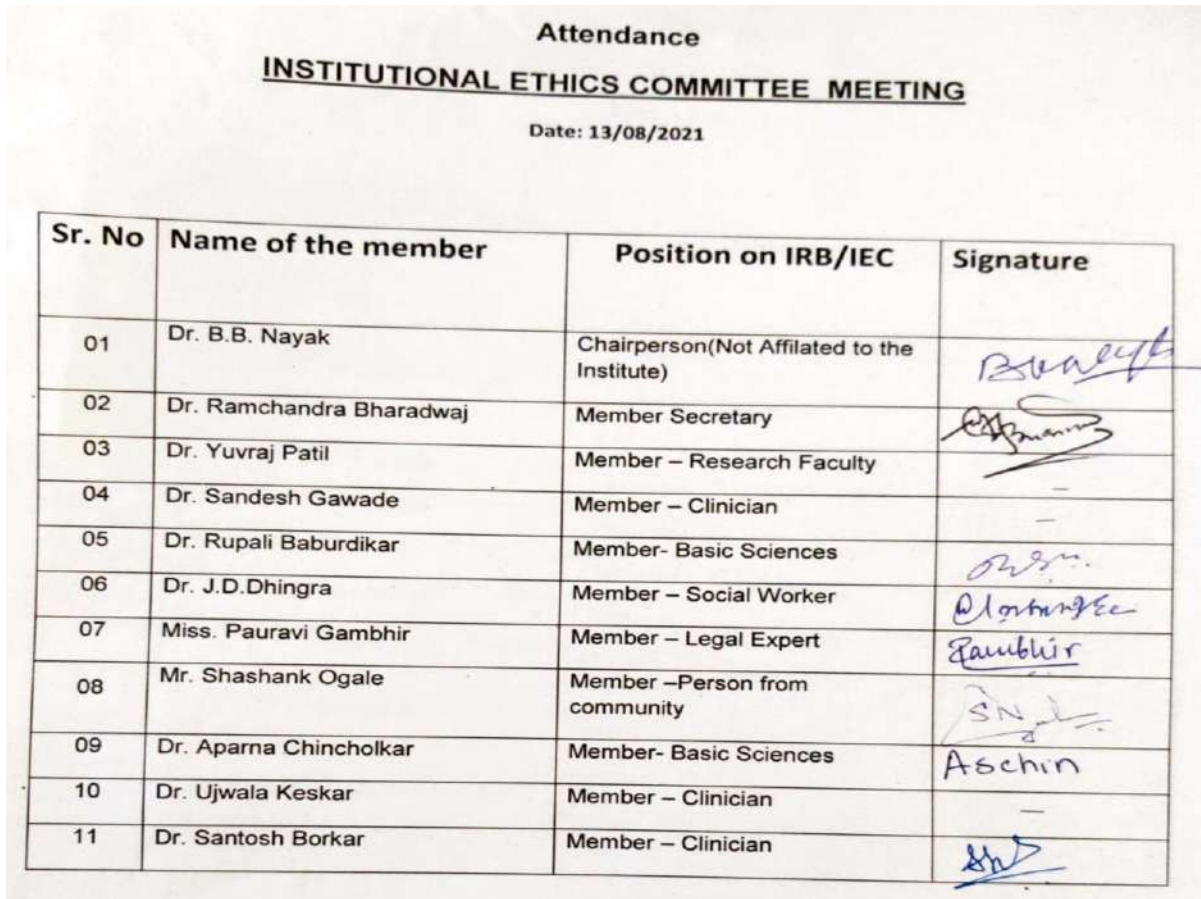 Attendance
INSTITUTIONAL ETHICS COMMITTEE MEETING
Date: 13/08/2021
Sr. No Name of the member Position on IRB/IEC Signature
01 Dr. B.B. Nayak Chairperson(Not Affilated to the
Institute)
02 Dr. Ramchandra Bharadwaj Member Secretary
03 Dr. Yuvraj Patil Member – Research Faculty –
04 Dr. Sandesh Gawade Member – Clinician –
05 Dr. Rupali Baburdikar Member- Basic Sciences
06 Dr. J.D.Dhingra Member – Social Worker
07 Miss. Pauravi Gambhir Member – Legal Expert
08 Mr. Shashank Ogale Member –Person from
community
09 Dr. Aparna Chincholkar Member- Basic Sciences Aschin
10 Dr. Ujwala Keskar Member – Clinician –
11 Dr. Santosh Borkar Member – Clinician